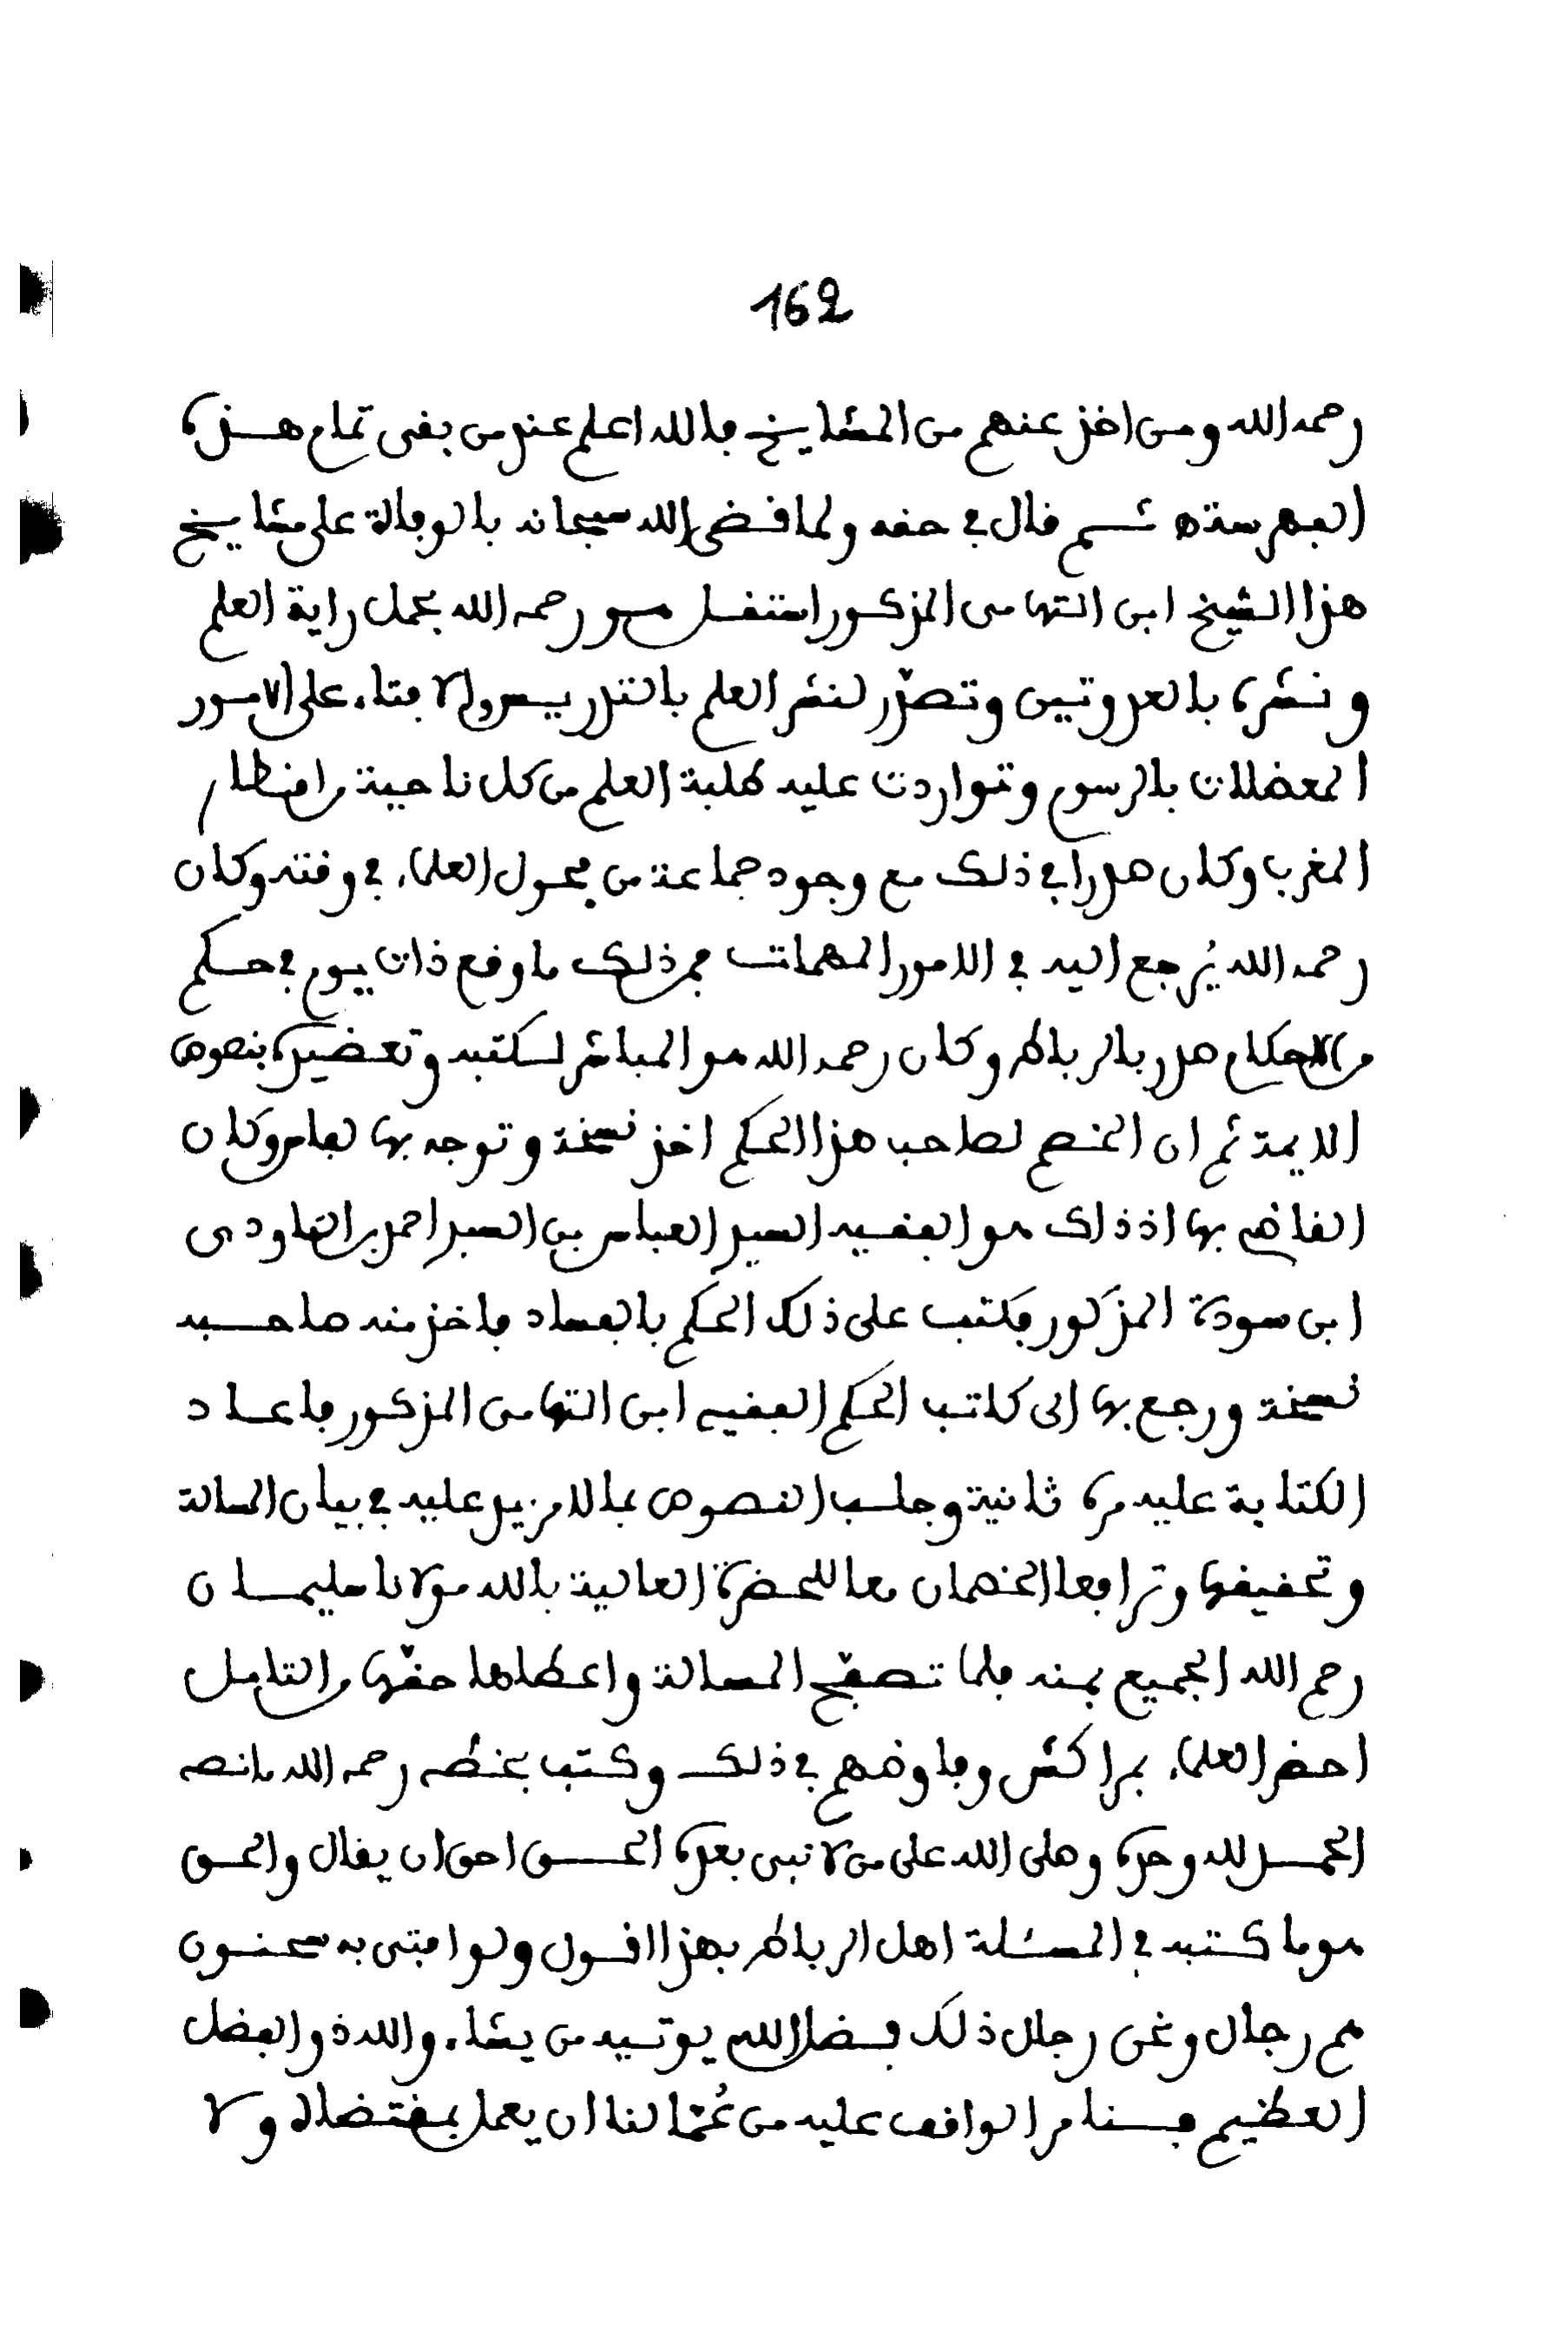 162
رحمه الله ومن اخذ عنهم من المشايخ فالله اعلم عند من بقى تمام هذه
الفهرسة ه ثم قال في حقه ولما قضى الله سبحانه بالوفاة على مشايخ
هذا الشيخ ابى التهامى المذكور استقل هو رحمه الله بحمل راية العلم
ونشره بالعدوتين وتصدّر لنشر العلم بالتدريس والافتاء على الامور
المعضلات بالرسوم وتواردت عليه طلبة العلم من كل ناحية من اقطار
المغرب وكان صدرا في ذلك مع وجود جماعة من فحول العلماء في وقته وكان
رحمه الله يُرجع اليه في الامور المهمات فمن ذلك ما وقع ذات يوم في حكم
من الاحكام صدر بالرباط وكان رحمه الله هو المباشر لكتبه وتعضيده بنصوص
الايمة ثم ان الخصم لصاحب هذا الحكم اخذ نسخة وتوجه بها لفاس وكان
القاضى بها اذ ذاك هو الفقيه السيد العباس بن السيد احمد بن التاودى
ابن سودة المذكور فكتب على ذلك الحكم بالفساد فاخذ منه صاحبه
نسخة ورجع بها الى كاتب الحكم الفقيه ابى التهامى المذكور فاعاد
الكتابة عليه مرة ثانية وجلب النصوص بما لا مزيد عليه في بيان المسالة
وتحقيقها وترافعا الخصمان معا للحضرة العالية بالله مولانا سليمان
رحم الله الجميع بمنه فلما تصفّح المسالة واعطاها حقّها من التامل
احضر العلماء بمراكش وفاوضهم في ذلك وكتب بخطه رحمه الله ما نصه
الحمد لله وحده وصلى الله على من لا نبى بعده الحق احق ان يقال والحق
هو ما كتبه في المسئلة اهل الرباط بهذا اقول ولو افتى به سحنون
هم رجال ونحن رجال ذلك فضل الله يوتيه من يشاء والله ذو الفضل
العظيم فنامر الواقف عليه من عُمّالنا ان يعمل بمقتضاه ولا